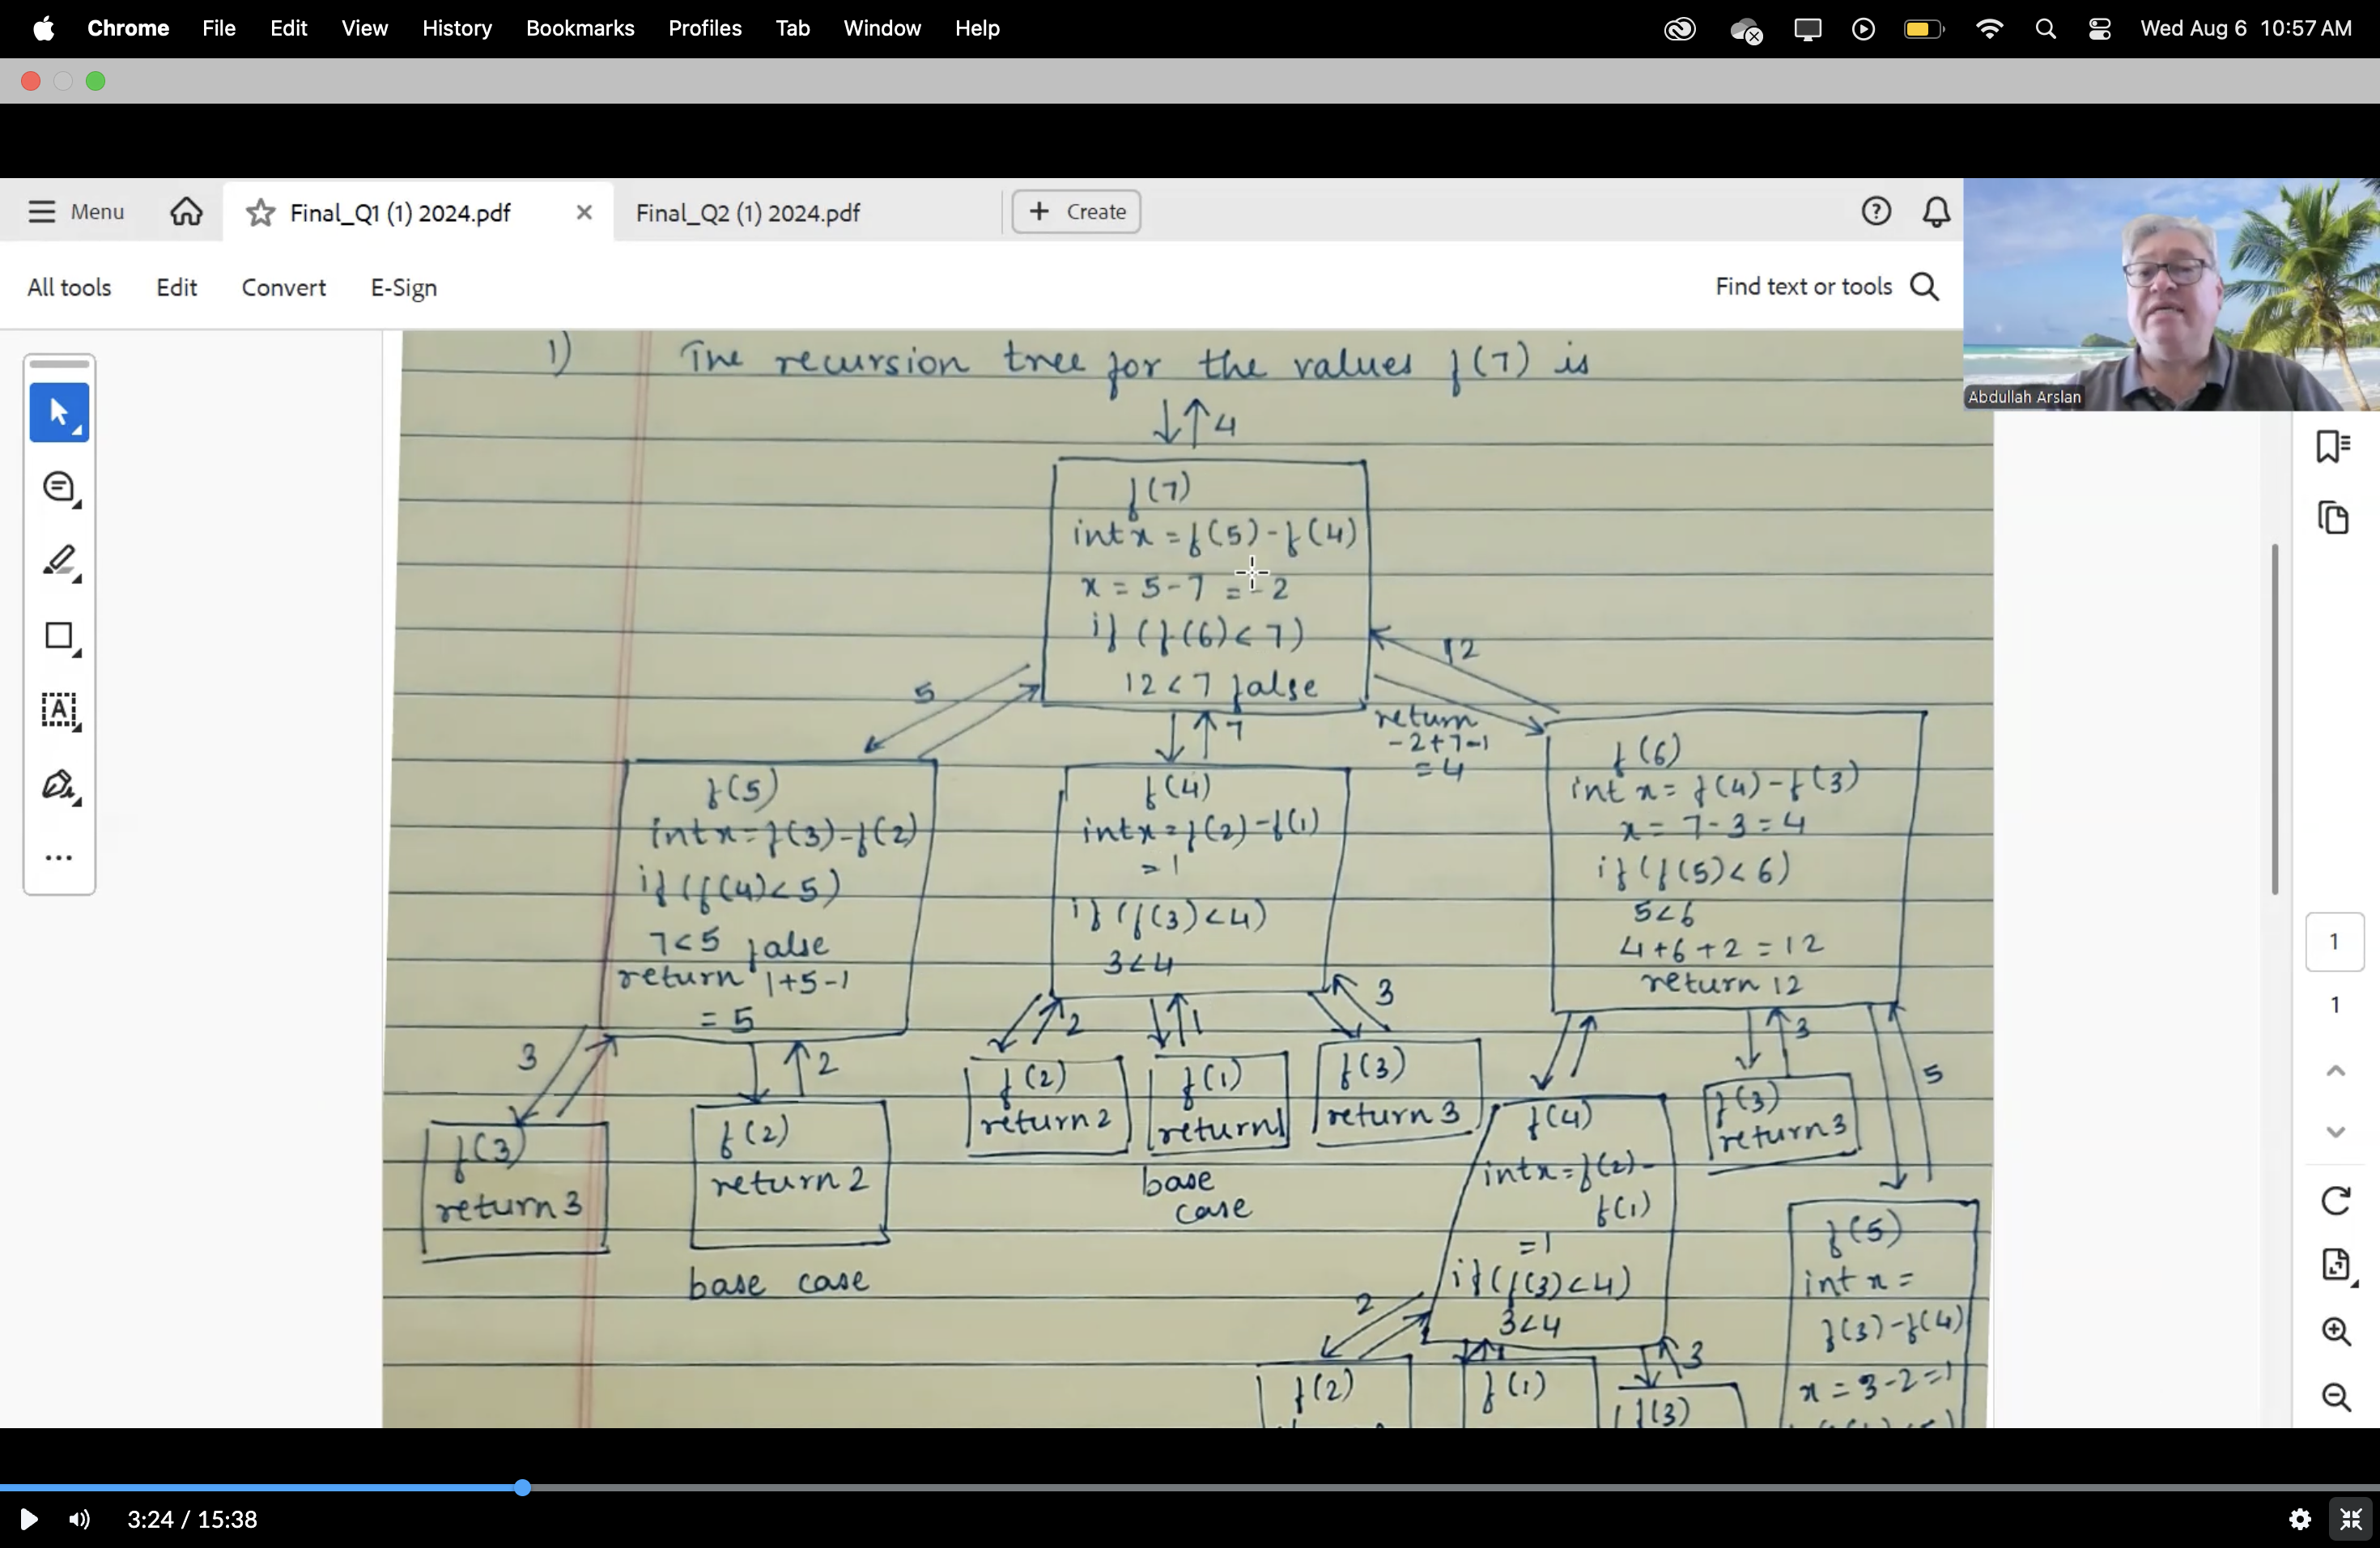 Chrome File Edit View History Bookmarks Profiles Tab Window Help
Wed Aug 6 10:57 AM
Menu
Final_Q1 (1) 2024.pdf
Final_Q2 (1) 2024.pdf
+ Create
All tools Edit Convert E-Sign
Find text or tools
Abdullah Arslan
1) The recursion tree for the values f(7) is
4
f(7)
int x = f(5) - f(4)
x = 5 - 7 = -2
if (f(6) < 7)
12 < 7 false
5
7
12
return
-2+7-1
= 4
f(5)
int x = f(3) - f(2)
if (f(4) < 5)
7 < 5 false
return 1+5-1
= 5
f(4)
int x = f(2) - f(1)
= 1
if (f(3) < 4)
3 < 4
f(6)
int x = f(4) - f(3)
x = 7 - 3 = 4
if (f(5) < 6)
5 < 6
4 + 6 + 2 = 12
return 12
3
2
2
1
3
3
5
f(3)
return 3
f(2)
return 2
base case
f(2)
return 2
f(1)
return 1
base
case
f(3)
return 3
f(4)
int x = f(2) -
f(1)
= 1
if (f(3) < 4)
3 < 4
f(3)
return 3
f(5)
int x =
f(3) - f(4)
x = 3 - 2 = 1
2
3
f(2)
f(1)
f(3)
1
1
3:24 / 15:38